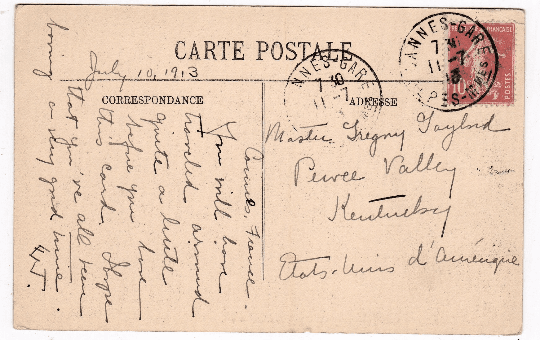 CARTE POSTALE
July 10, 1913
CORRESPONDANCE
ADRESSE
Cannes, France.
You will have
traveled around
quite a little
before you have
this card. I hope
that you've all been
having a very good time.
Master Gregory Gaylord
Pewee Valley
Kentucky
États-Unis d'Amérique
CANNES-GARE
7
11-7
13
ALPES-MMES
NNES-GARE
7
11-7
FRANÇAISE
10
POSTES